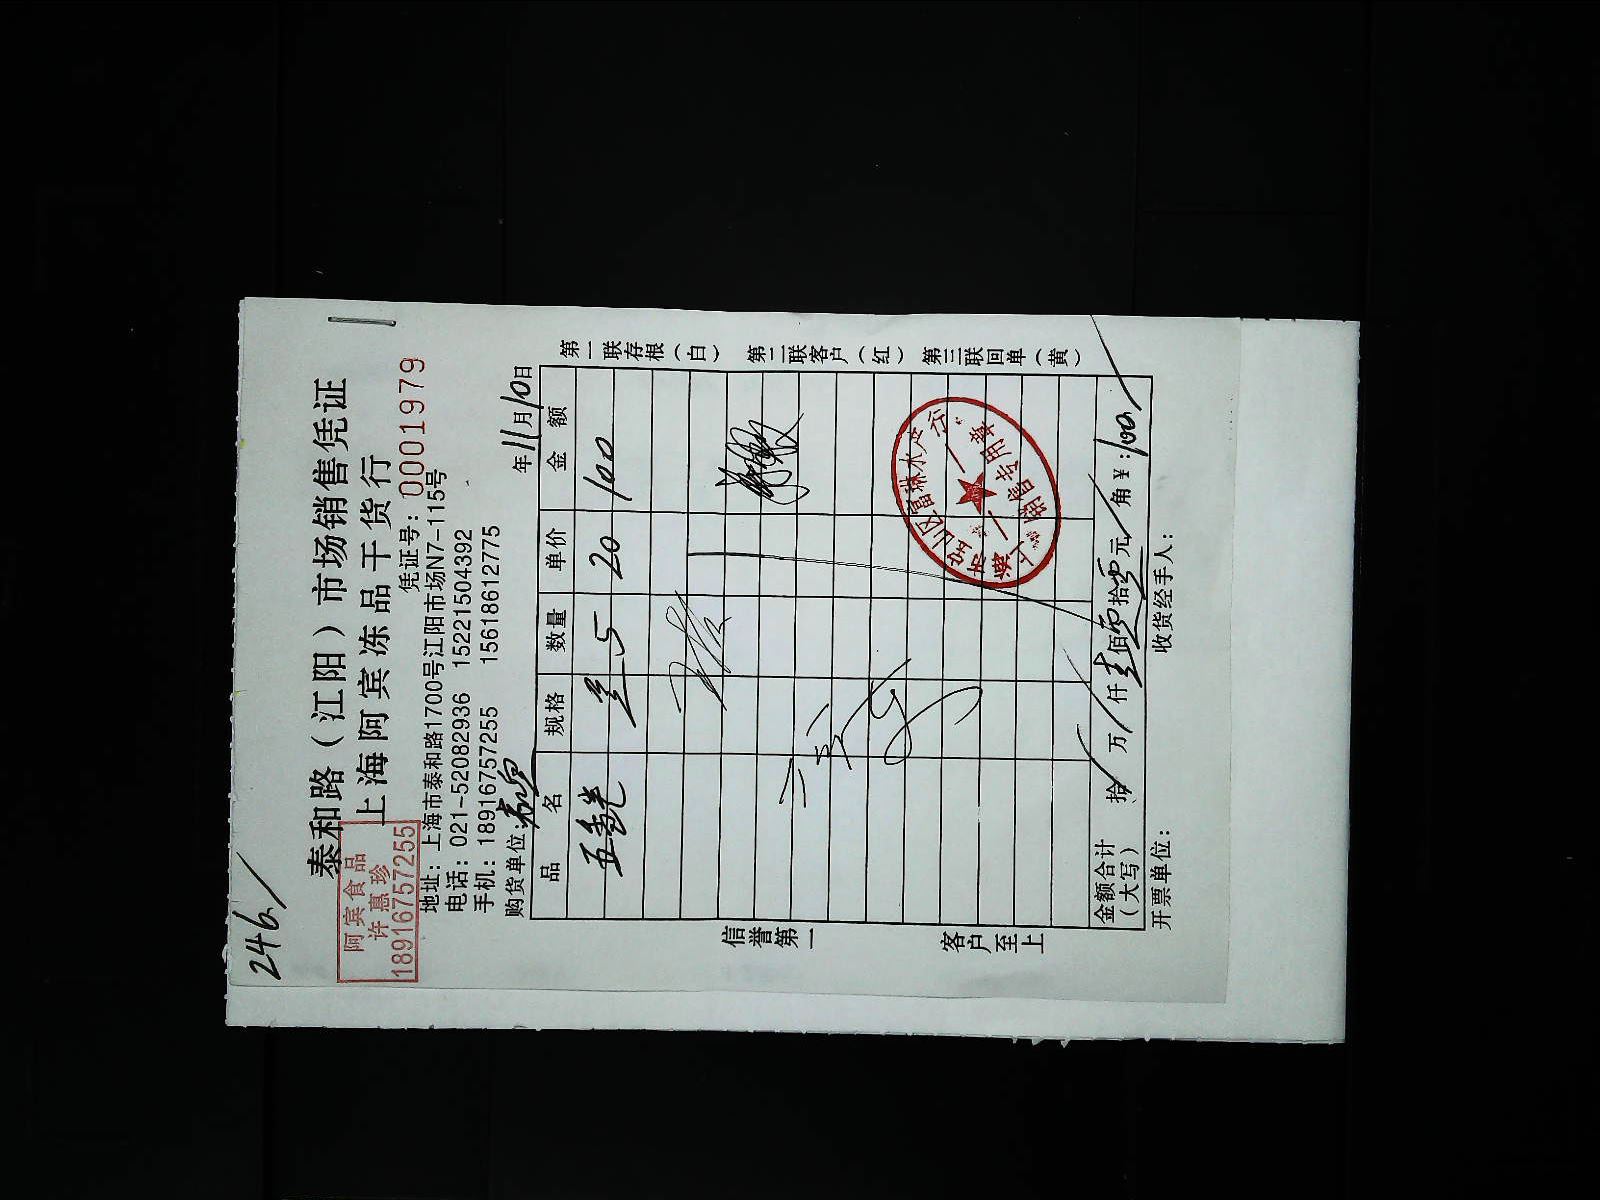 246
泰和路（江阳）市场销售凭证
上海阿宾冻品干货行
阿宾食品
许惠珍
18916757255
凭证号：0001979
地址：上海市泰和路1700号江阳市场N7-115号
电话：021-52082936 15221504392
手机：18916757255 15618612775
购货单位：
年11月10日
品名 规格 数量 单价 金额
5 20 100
第一联存根（白） 第二联客户（红） 第三联回单（黄）
信誉第一 客户至上
上海市宝山区富琳水产行
销售专用章
金额合计（大写） 拾 万 仟 壹佰零拾零元 角 ￥：100
开票单位： 收货经手人：